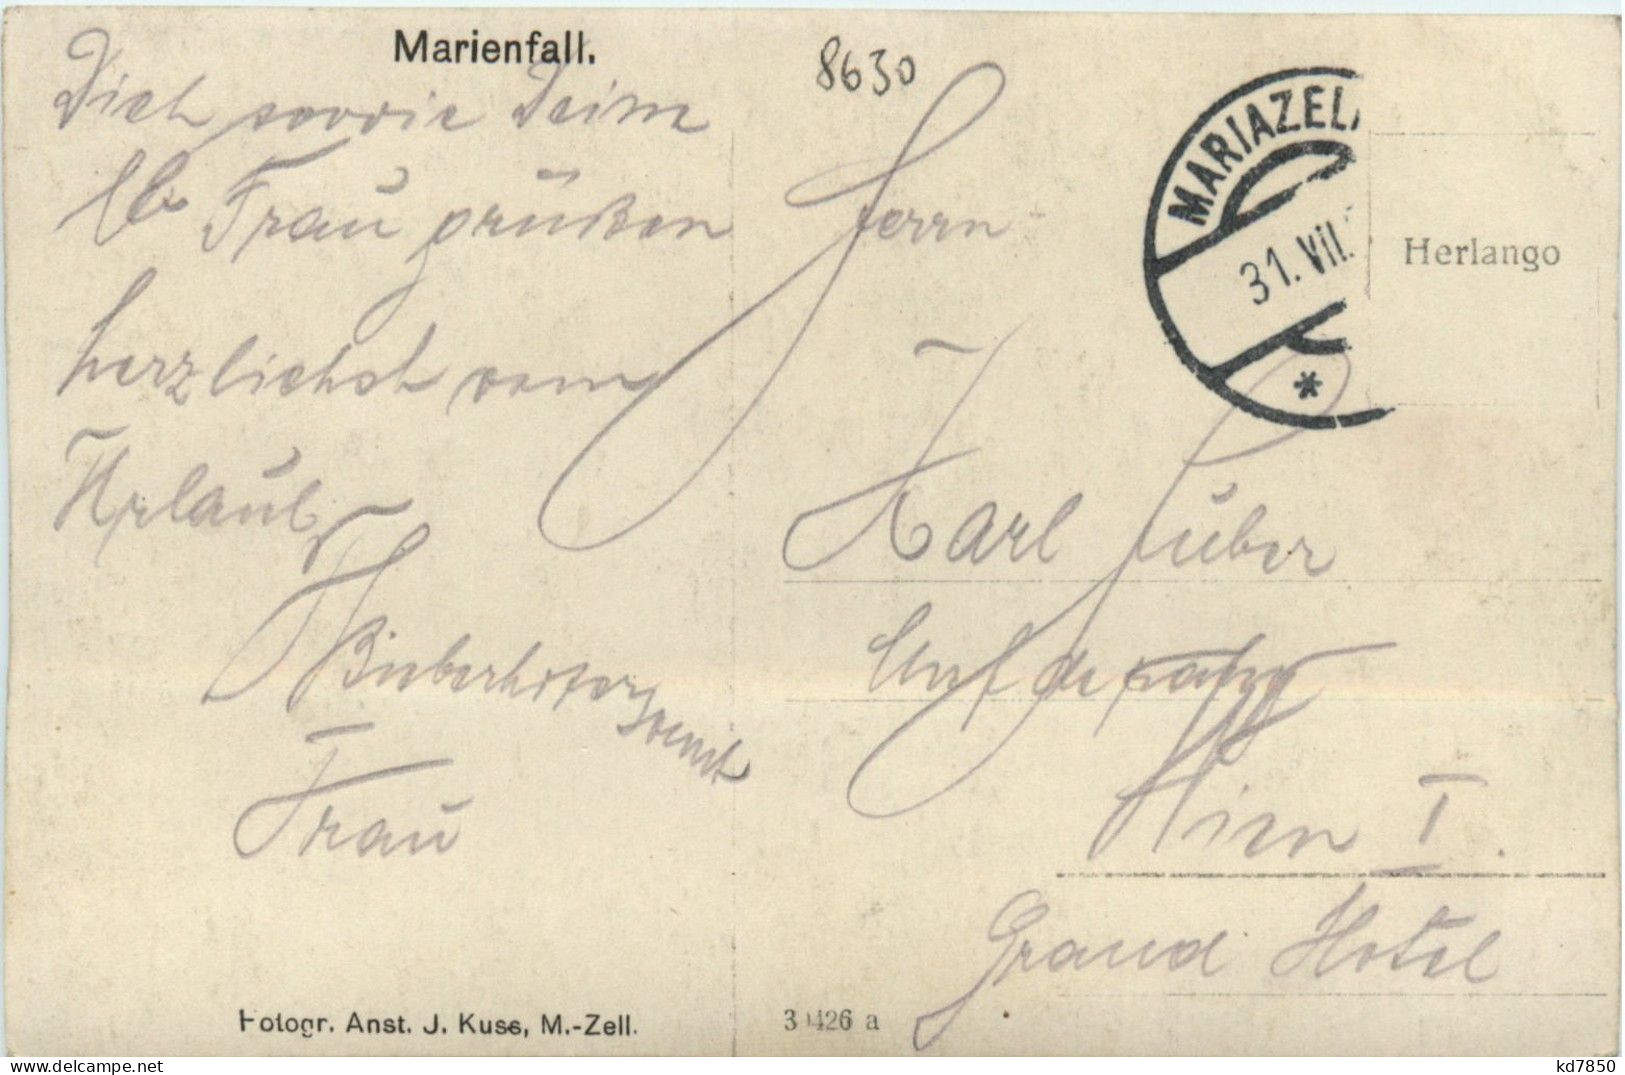 Marienfall.
8630
Dich sowie Deine
lb. Frau grüßen
herzlichst vom
Urlaub
Bieberhofer
samt
Frau
Herrn
Karl Huber
Wien I.
Grand Hotel
MARIAZEL
31. VII.
*
Herlango
Fotogr. Anst. J. Kuss, M.-Zell.
30426 a
kd7850